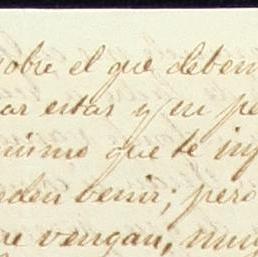 sobre el que deben
ar estas y en pe
mismo que te inf
den venir; pero
ue vengan, muy